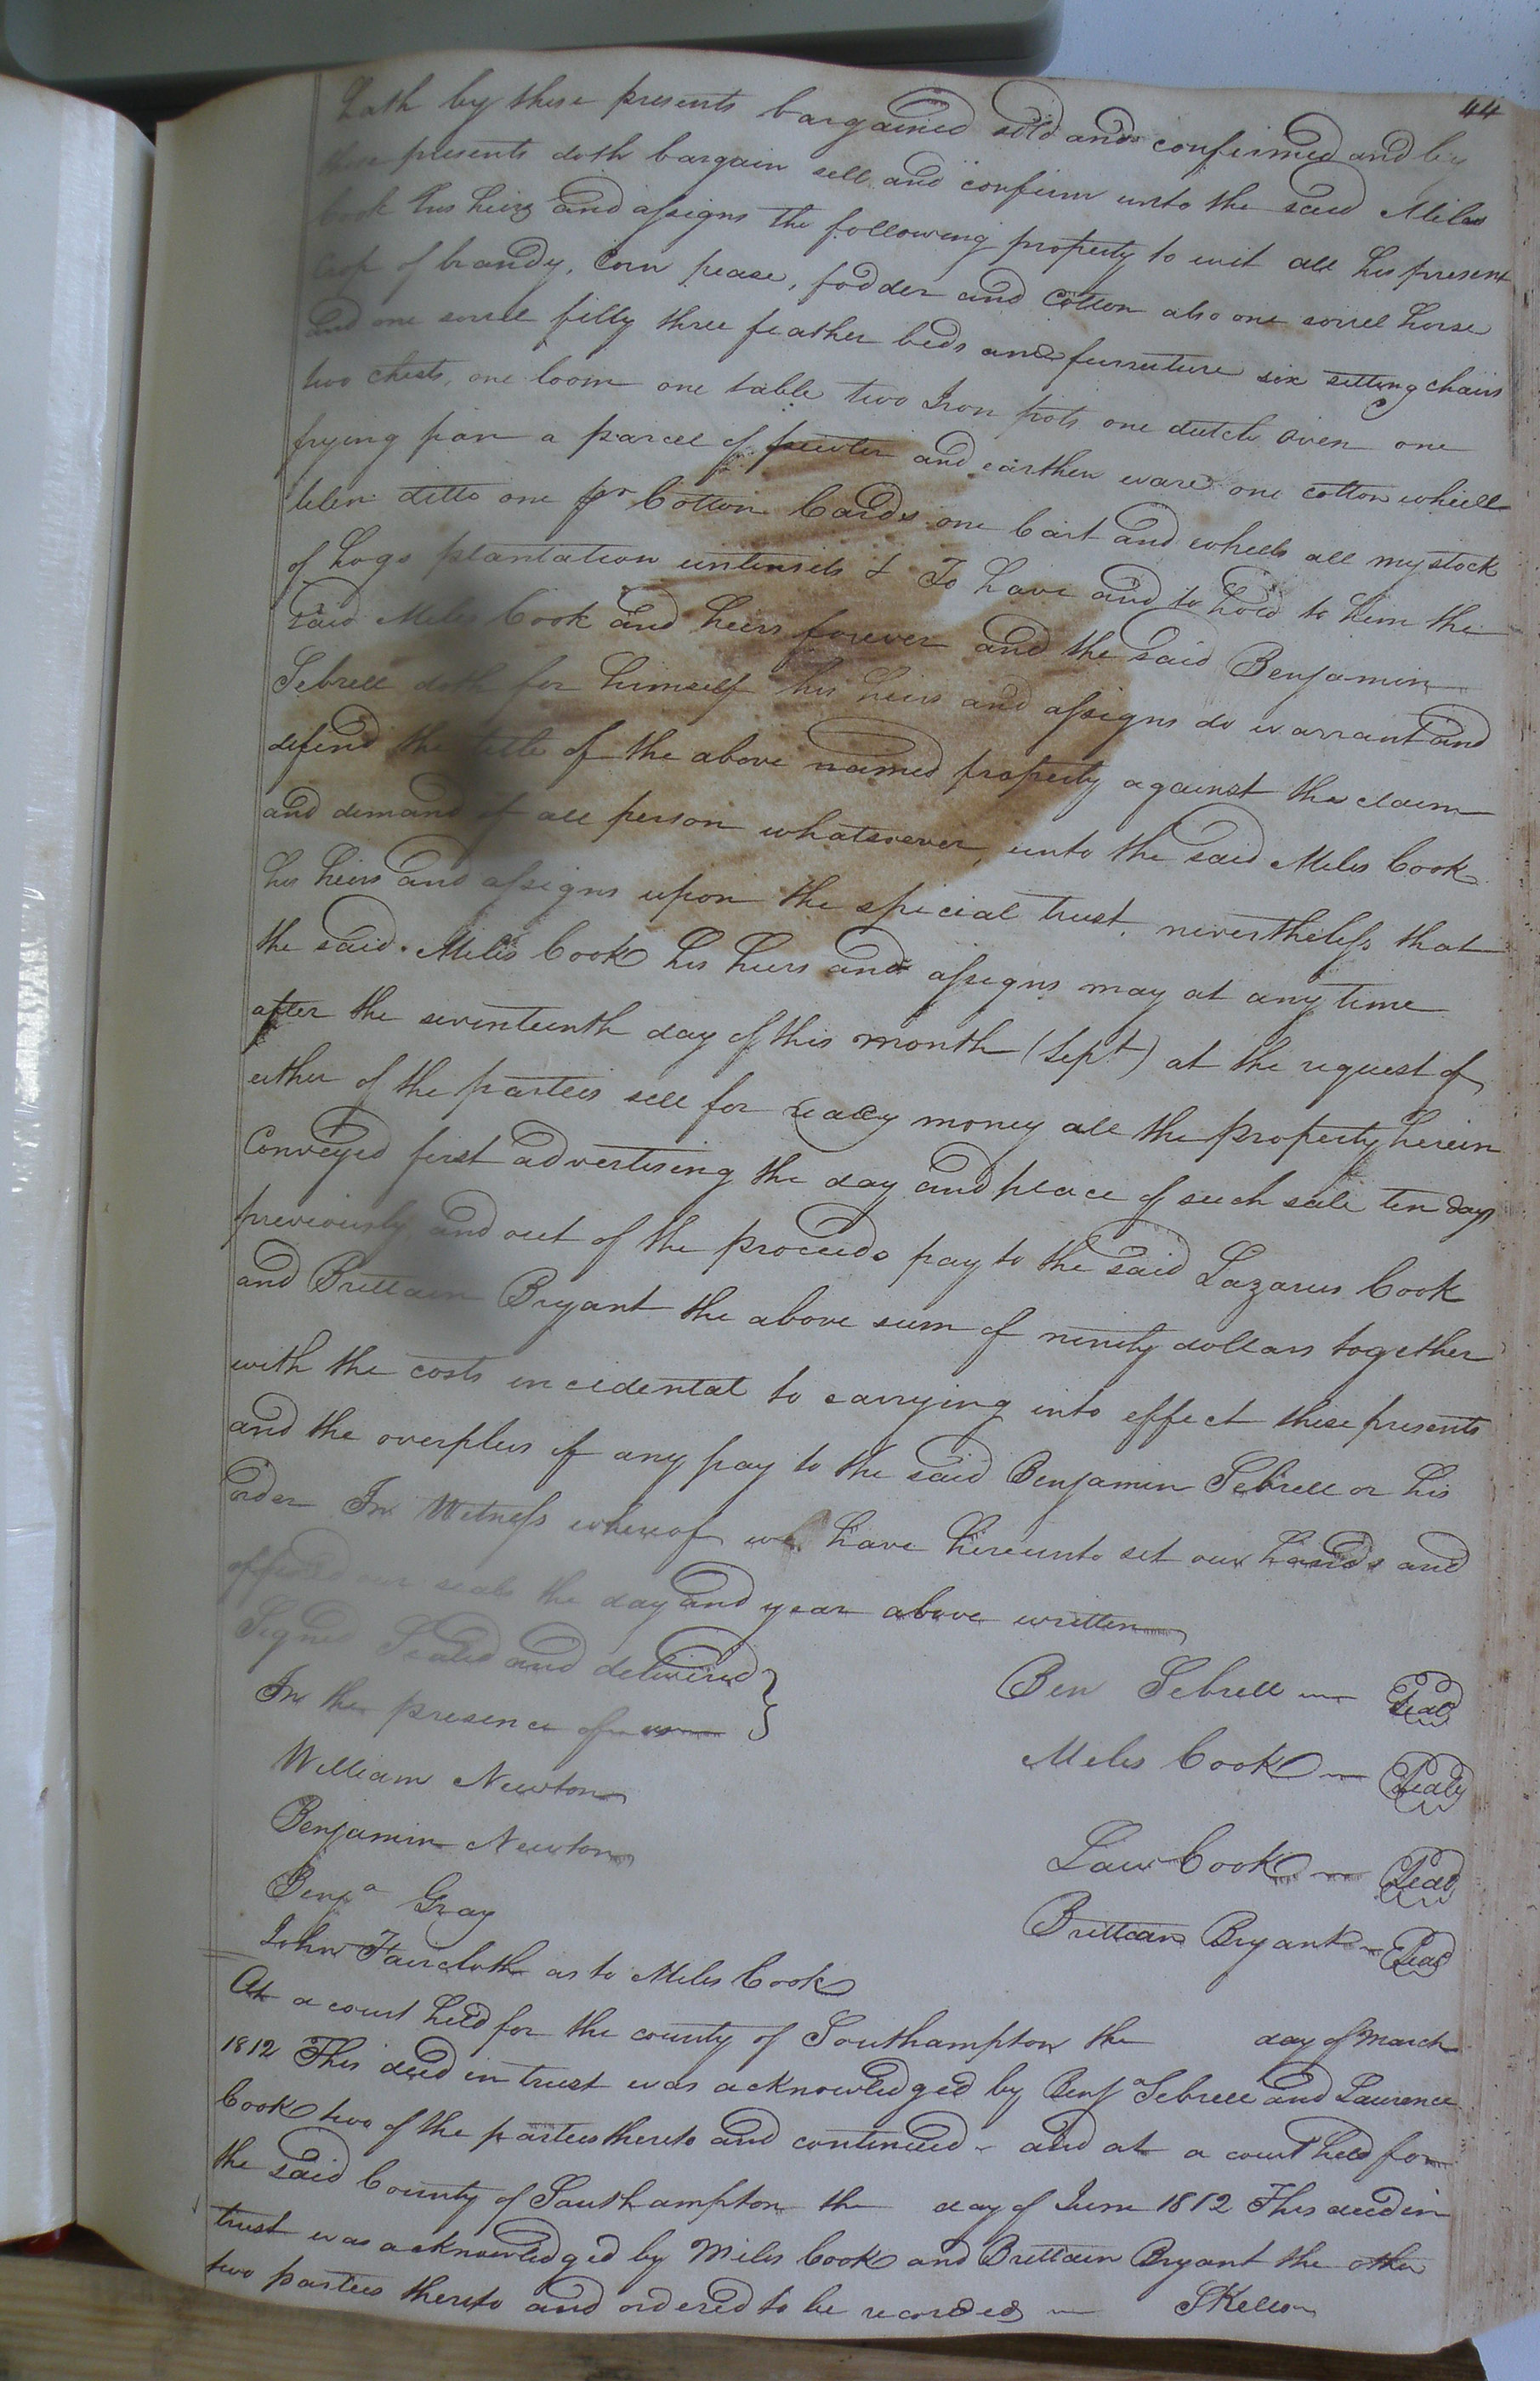 44
hath by these presents bargained sold and confirmed and by
these presents doth bargain sell and confirm unto the said Miles
Cook his heirs and assigns the following property to wit all his present
Crop of brandy, Corn pease, fodder and Cotton also one sorrel horse
and one sorrel filly three feather beds and furnuture six setting chairs
two chests, one loom one table two Iron pots one dutch oven one
frying pan a parcel of pewter and earthen ware one cotton wheell
ditto one pr Cotton Cards one Cart and wheels all my stock
of hogs plantation untensils & To have and to hold to him the
said Miles Cook and heirs forever and the said Benjamin
Sebrell doth for himself his heirs and assigns do warrant and
defend the title of the above named property against the claim
and demand of all person whatsoever, unto the said Miles Cook
his heirs and assigns upon the special trust, nevertheless that
the said Miles Cook his heirs and assigns may at any time
after the seventeenth day of this month (Sept) at the request of
either of the parties sell for ready money all the property herein
Conveyed first advertising the day and place of such sale ten days
previously and out of the proceeds pay to the said Lazarus Cook
and Brittain Bryant the above sum of ninety dollars together
with the costs incidental to carrying into effect these presents
and the overplus if any pay to the said Benjamin Sebrell or his
order In Witness whereof we have hereunto set our hands and
affixed our seals the day and year above written
Signed Sealed and delivered }
In the presence of us
Ben Sebrell Seal
William Newton
Miles Cook Seal
Benjamin Newton
Law Cook Seal
Benja Gray
Brittain Bryant Seal
John Faircloth as to Miles Cook
At a court held for the county of Southampton the day of March
1812 This deed in trust was acknowledged by Benja Sebrell and Laurence
Cook two of the parties thereto and continued - and at a court held for
the said County of Southampton the day of June 1812 This deed in
trust was acknowledged by Miles Cook and Brittain Bryant the other
two parties thereto and ordered to be recorded